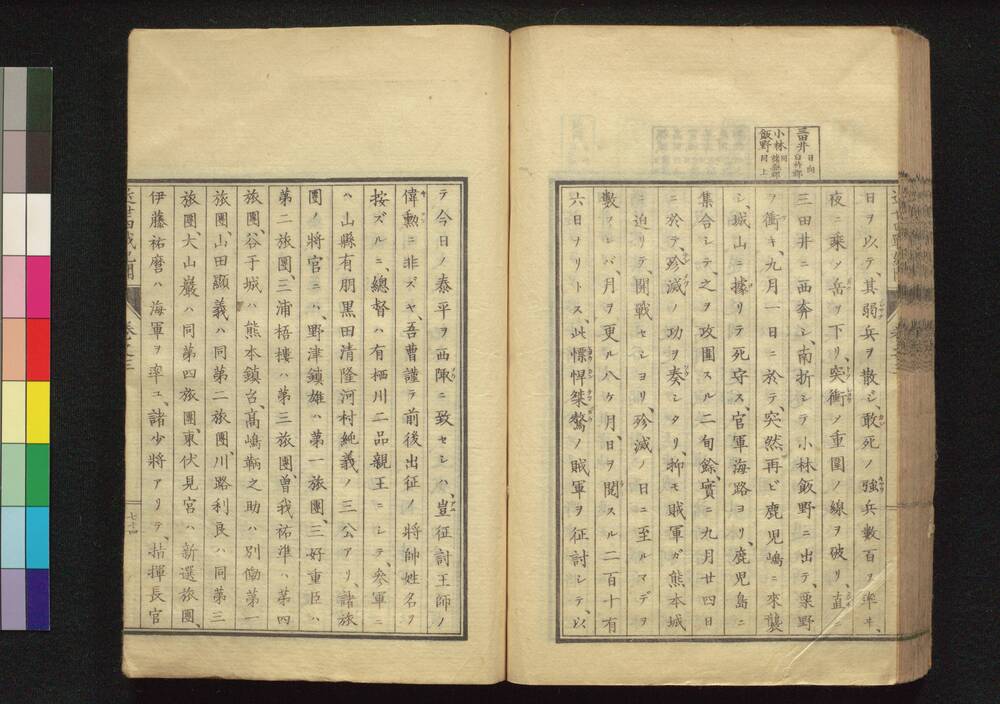 三田井 日向臼杵郡
小林 同諸縣郡
飯野 同上
日ヲ以テ、其弱兵ヲ散シ、敢死ノ強兵數百ヲ率ヰ、
夜ニ乗ノ岳ヲ下リ、突衝ノ重圍ノ線ヲ破リ、直ニ
三田井ニ西奔シ、南折シテ小林飯野ニ出テ、栗野
ヲ衝キ、九月一日ニ於テ、突然再ビ鹿児嶋ニ來襲
シ、城山ニ據リテ死守ス、官軍海路ヨリ、鹿児島ニ
集合シテ、之ヲ攻圍スル二旬餘、實ニ九月廿四日
ニ於テ、殄滅ノ功ヲ奏シタリ、抑モ賊軍ガ熊本城
ニ迫リテ、開戰セシヨリ、殄滅ノ日ニ至ルマデヲ
數フレバ、月ヲ更ル八ケ月、日ヲ閲スル二百十有
六日ヲリトス、此慓悍桀驁ノ賊軍ヲ征討シテ、以
テ今日ノ泰平ヲ西陬ニ致セシハ、豈征討王師ノ
偉勲ニ非ズヤ、吾曹謹テ前後出征ノ將帥姓名ヲ
按ズルニ、總督ハ有栖川二品親王ニシテ、參軍ニ
ハ山縣有朋黒田清隆河村純義ノ三公アリ、諸旅
團ノ將官ニハ、野津鎮雄ハ第一旅團、三好重臣ハ
第二旅團、三浦梧樓ハ第三旅團、曾我祐準ハ第四
旅團、谷干城ハ熊本鎮台、髙嶋鞆之助ハ別働第一
旅團、山田顯義ハ同第二旅團、川路利良ハ同第三
旅團、大山巖ハ同第四旅團、東伏見宮ハ新選旅團、
伊藤祐麿ハ海軍ヲ率ユ、諸少將アリテ、指揮長官
七十四